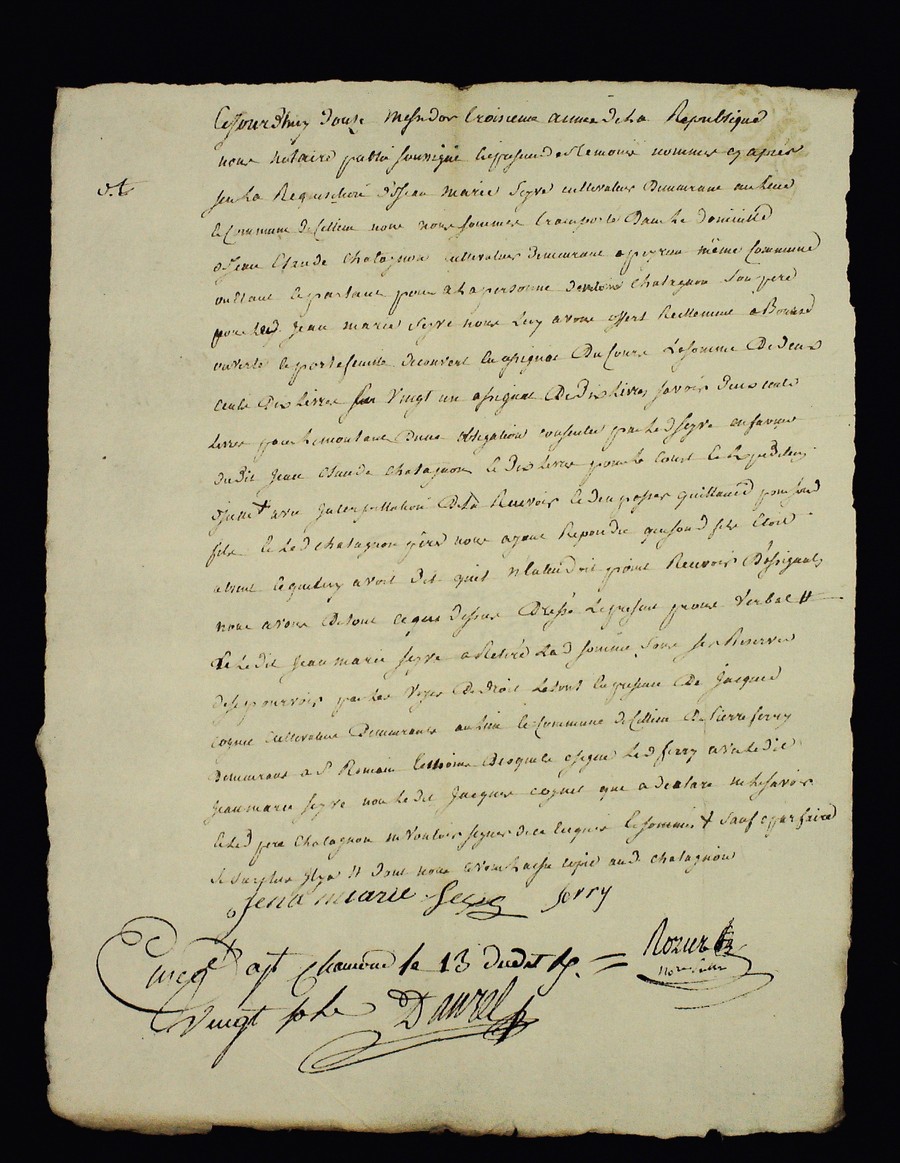 Cejourd'huy douze Messidor troisieme année de la Republique
nous Notaire public soussigné en presence des temoins nommés cy après
sur la Requisition de Jean Marie Seyve cultivateur demeurant au lieu
et commune de Cellieu nous nous sommes transporté dans le domicile
de Jean Claude Chatagnon cultivateur demeurant a peyron même commune
ou etant et parlant pour a la personne d'antoine Chatagnon son père
pour led. Jean marie Seyve nous luy avons offert Reellement a Bourse
ouverte et portefeuille decouvert en assignat du cours la somme de deux
cents dix livres vingt un assignat de dix livres, savoir deux cents
livres pour le montant d'une obligation consentie par led Seyve en faveur
dudit Jean Claude Chatagnon et dix livres pour le
avec Interpellation de la Recevoir et d'en passer quittance pour sond
fils et led Chatagnon père nous ayant Repondu que sond fils etoit
absent et qu'il luy avoit dit qu'il n'entendoit point Recevoir d'assignats
nous avons de tout ce que dessus Dressé le present procès verbal #
et ledit Jean marie Seyve a Retiré lad somme sous ses Reserves
de se pourvoir par les voyes de droit le tout en presence de Jacques
cognet cultivateur demeurant au lieu et commune de Cellieu de Pierre ferry
demeurant a St Romain temoins desquels a signé led ferry avec ledit
Jean marie Seyve non ledit Jacques cognet qui a declaré ne le savoir
et led père Chatagnon ne vouloir signer de ce enquis et sommés + sauf a parfaire
le surplus s'il y a # dont nous avons laissé copie aud. Chatagnon
Jean marie Seyve ferry
Enreg.é a St Chamond le 13 dudit R. =
Rozier
vingt sols Daurel